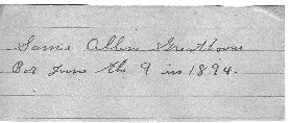 Samie Allen Greathouse
Bor June the 9 in 1894.